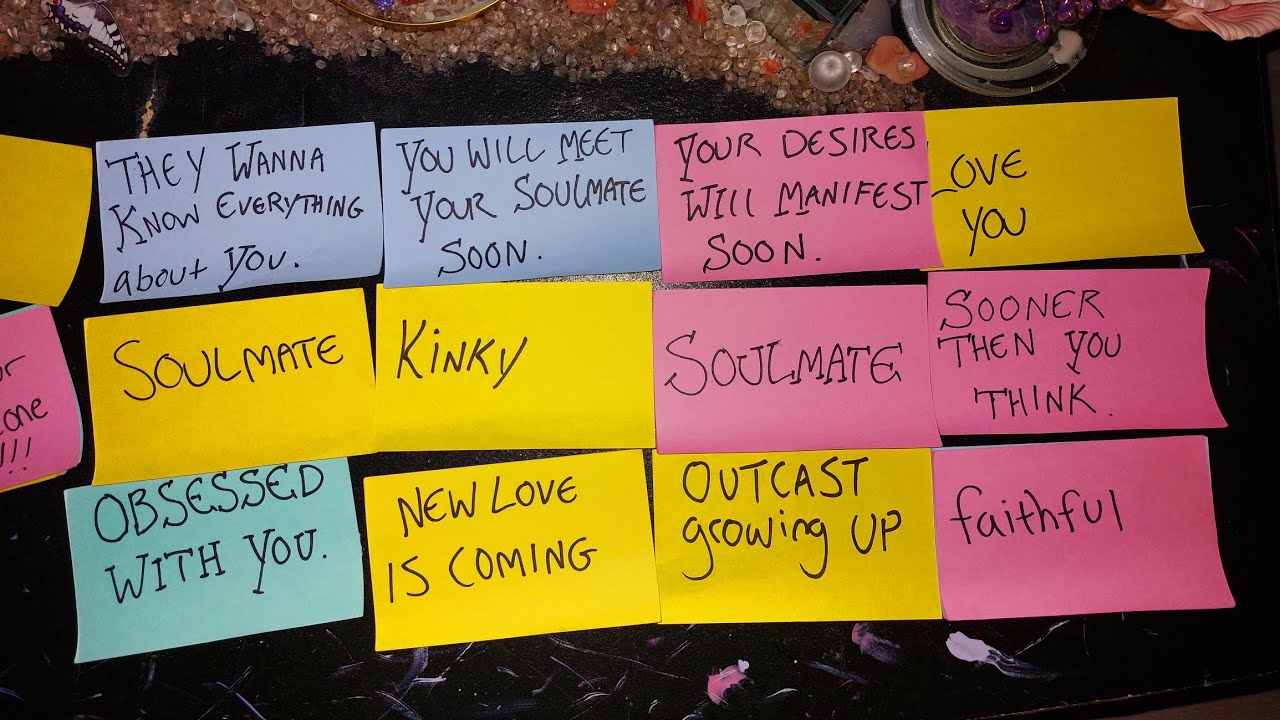 THEY WANNA
KNOW EVERYTHING
about YOU.
YOU WILL MEET
YOUR SOULMATE
SOON.
YOUR DESIRES
WILL MANIFEST
SOON.
LOVE
YOU
SOULMATE
KiNKY
SOULMATE
SOONER
THEN YOU
THINK.
one
!!!
OBSESSED
WITH YOU.
NEW LOVE
IS COMING
OUTCAST
growing UP
faithful